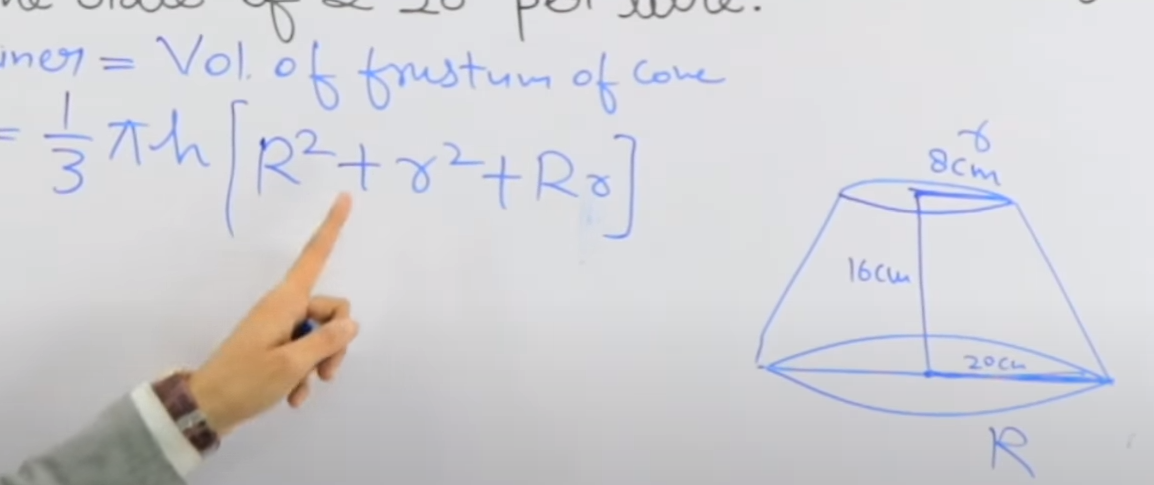 of ₹ 20 per litre.
= Vol. of frustum of cone
= 1/3 πh [R² + r² + Rr]
r
8cm
16cm
20cm
R